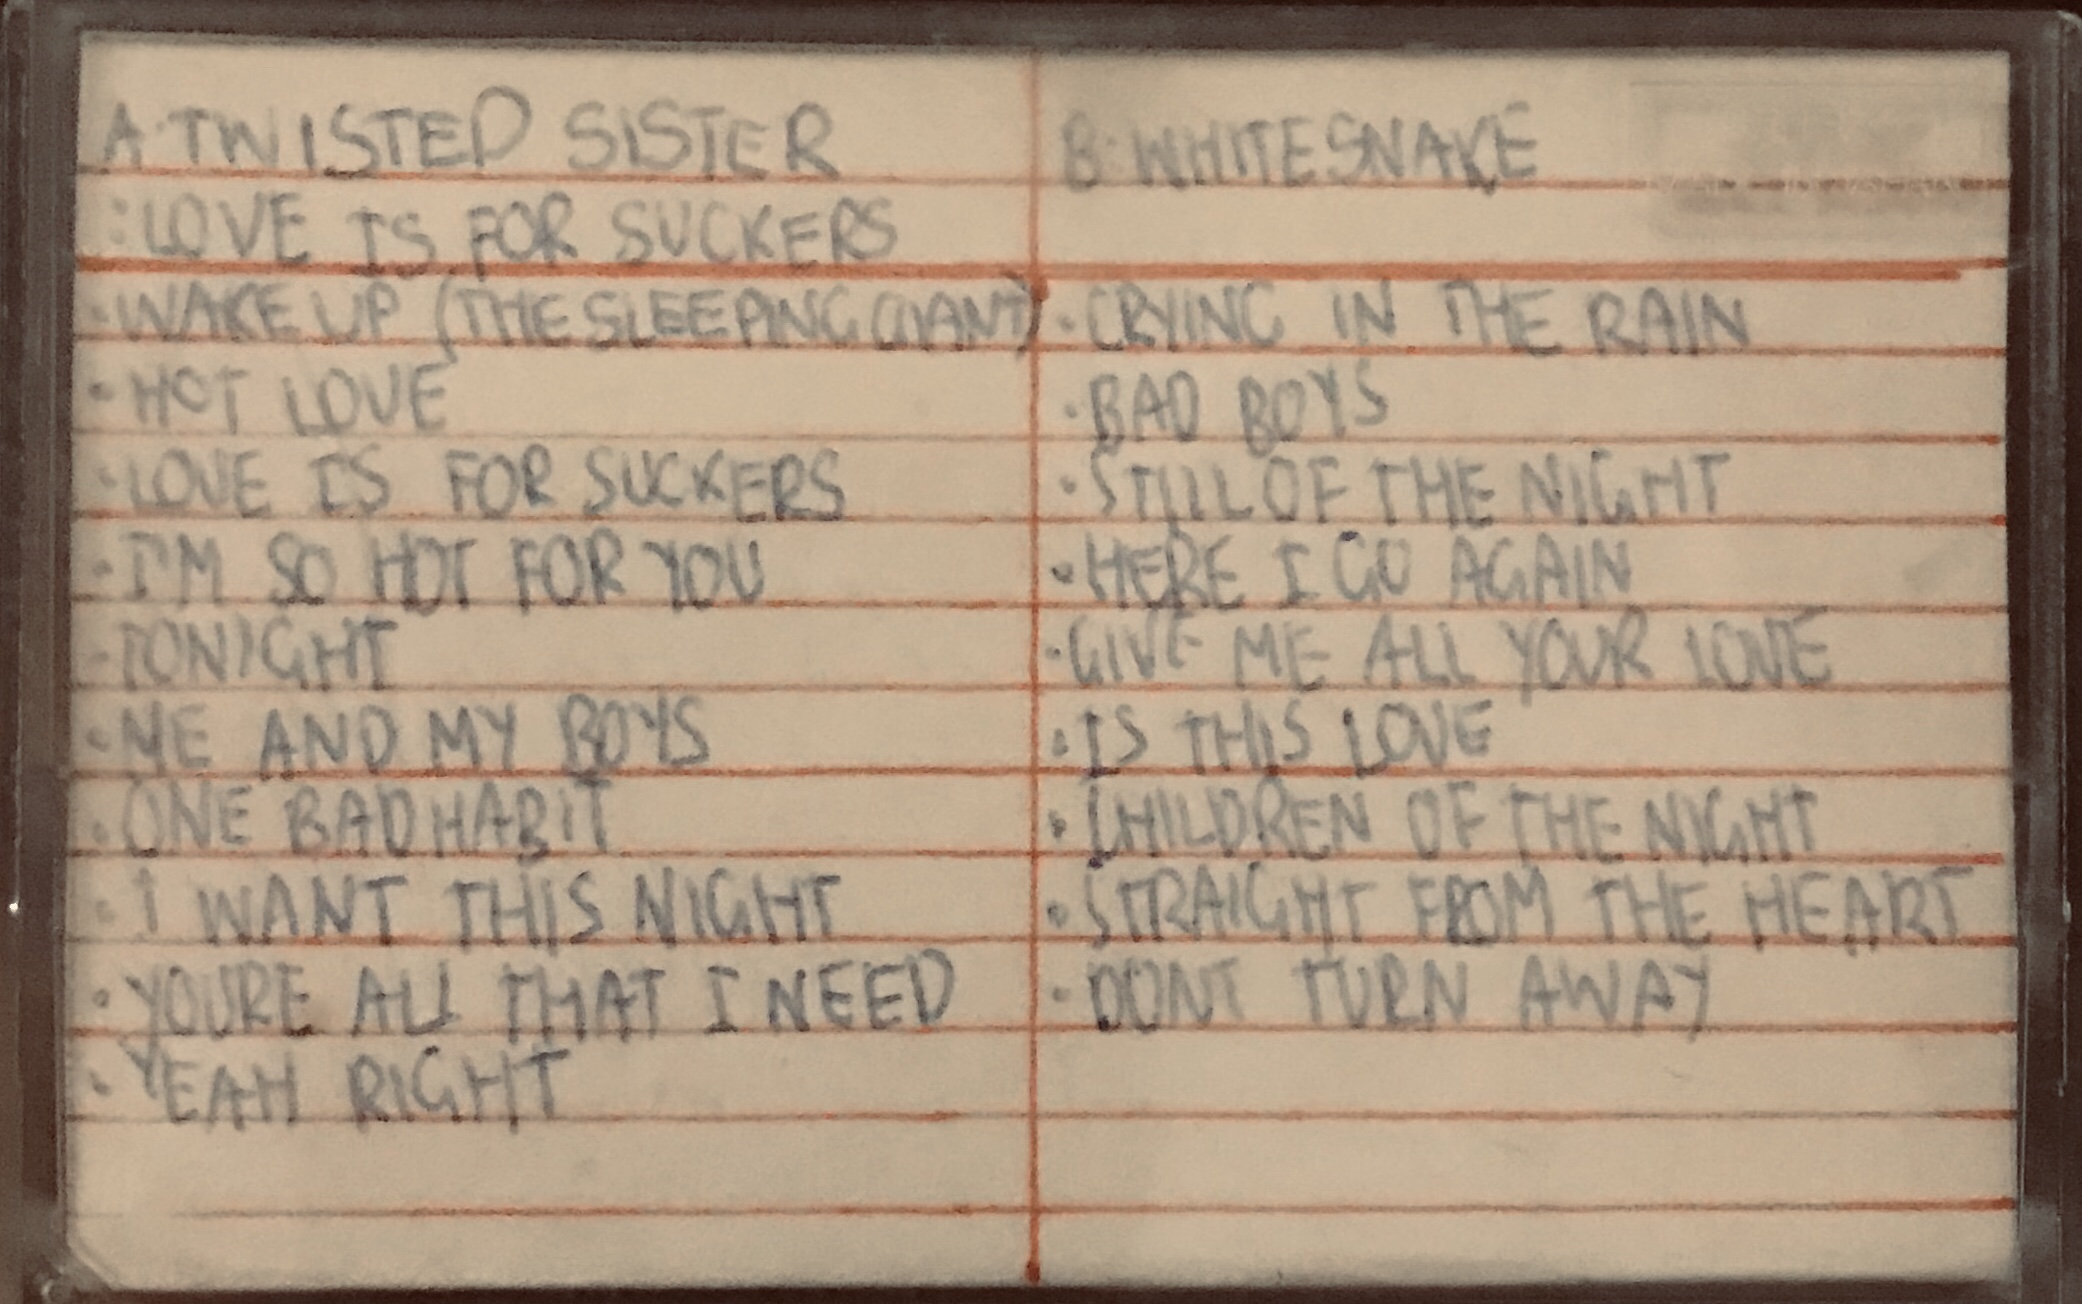 A: TWISTED SISTER
: LOVE IS FOR SUCKERS
· WAKE UP (THE SLEEPING GIANT)
· HOT LOVE
· LOVE IS FOR SUCKERS
· I'M SO HOT FOR YOU
· TONIGHT
· ME AND MY BOYS
· ONE BAD HABIT
· I WANT THIS NIGHT
· YOURE ALL THAT I NEED
· YEAH RIGHT
B: WHITESNAKE
· CRYING IN THE RAIN
· BAD BOYS
· STILL OF THE NIGHT
· HERE I GO AGAIN
· GIVE ME ALL YOUR LOVE
· IS THIS LOVE
· CHILDREN OF THE NIGHT
· STRAIGHT FROM THE HEART
· DONT TURN AWAY